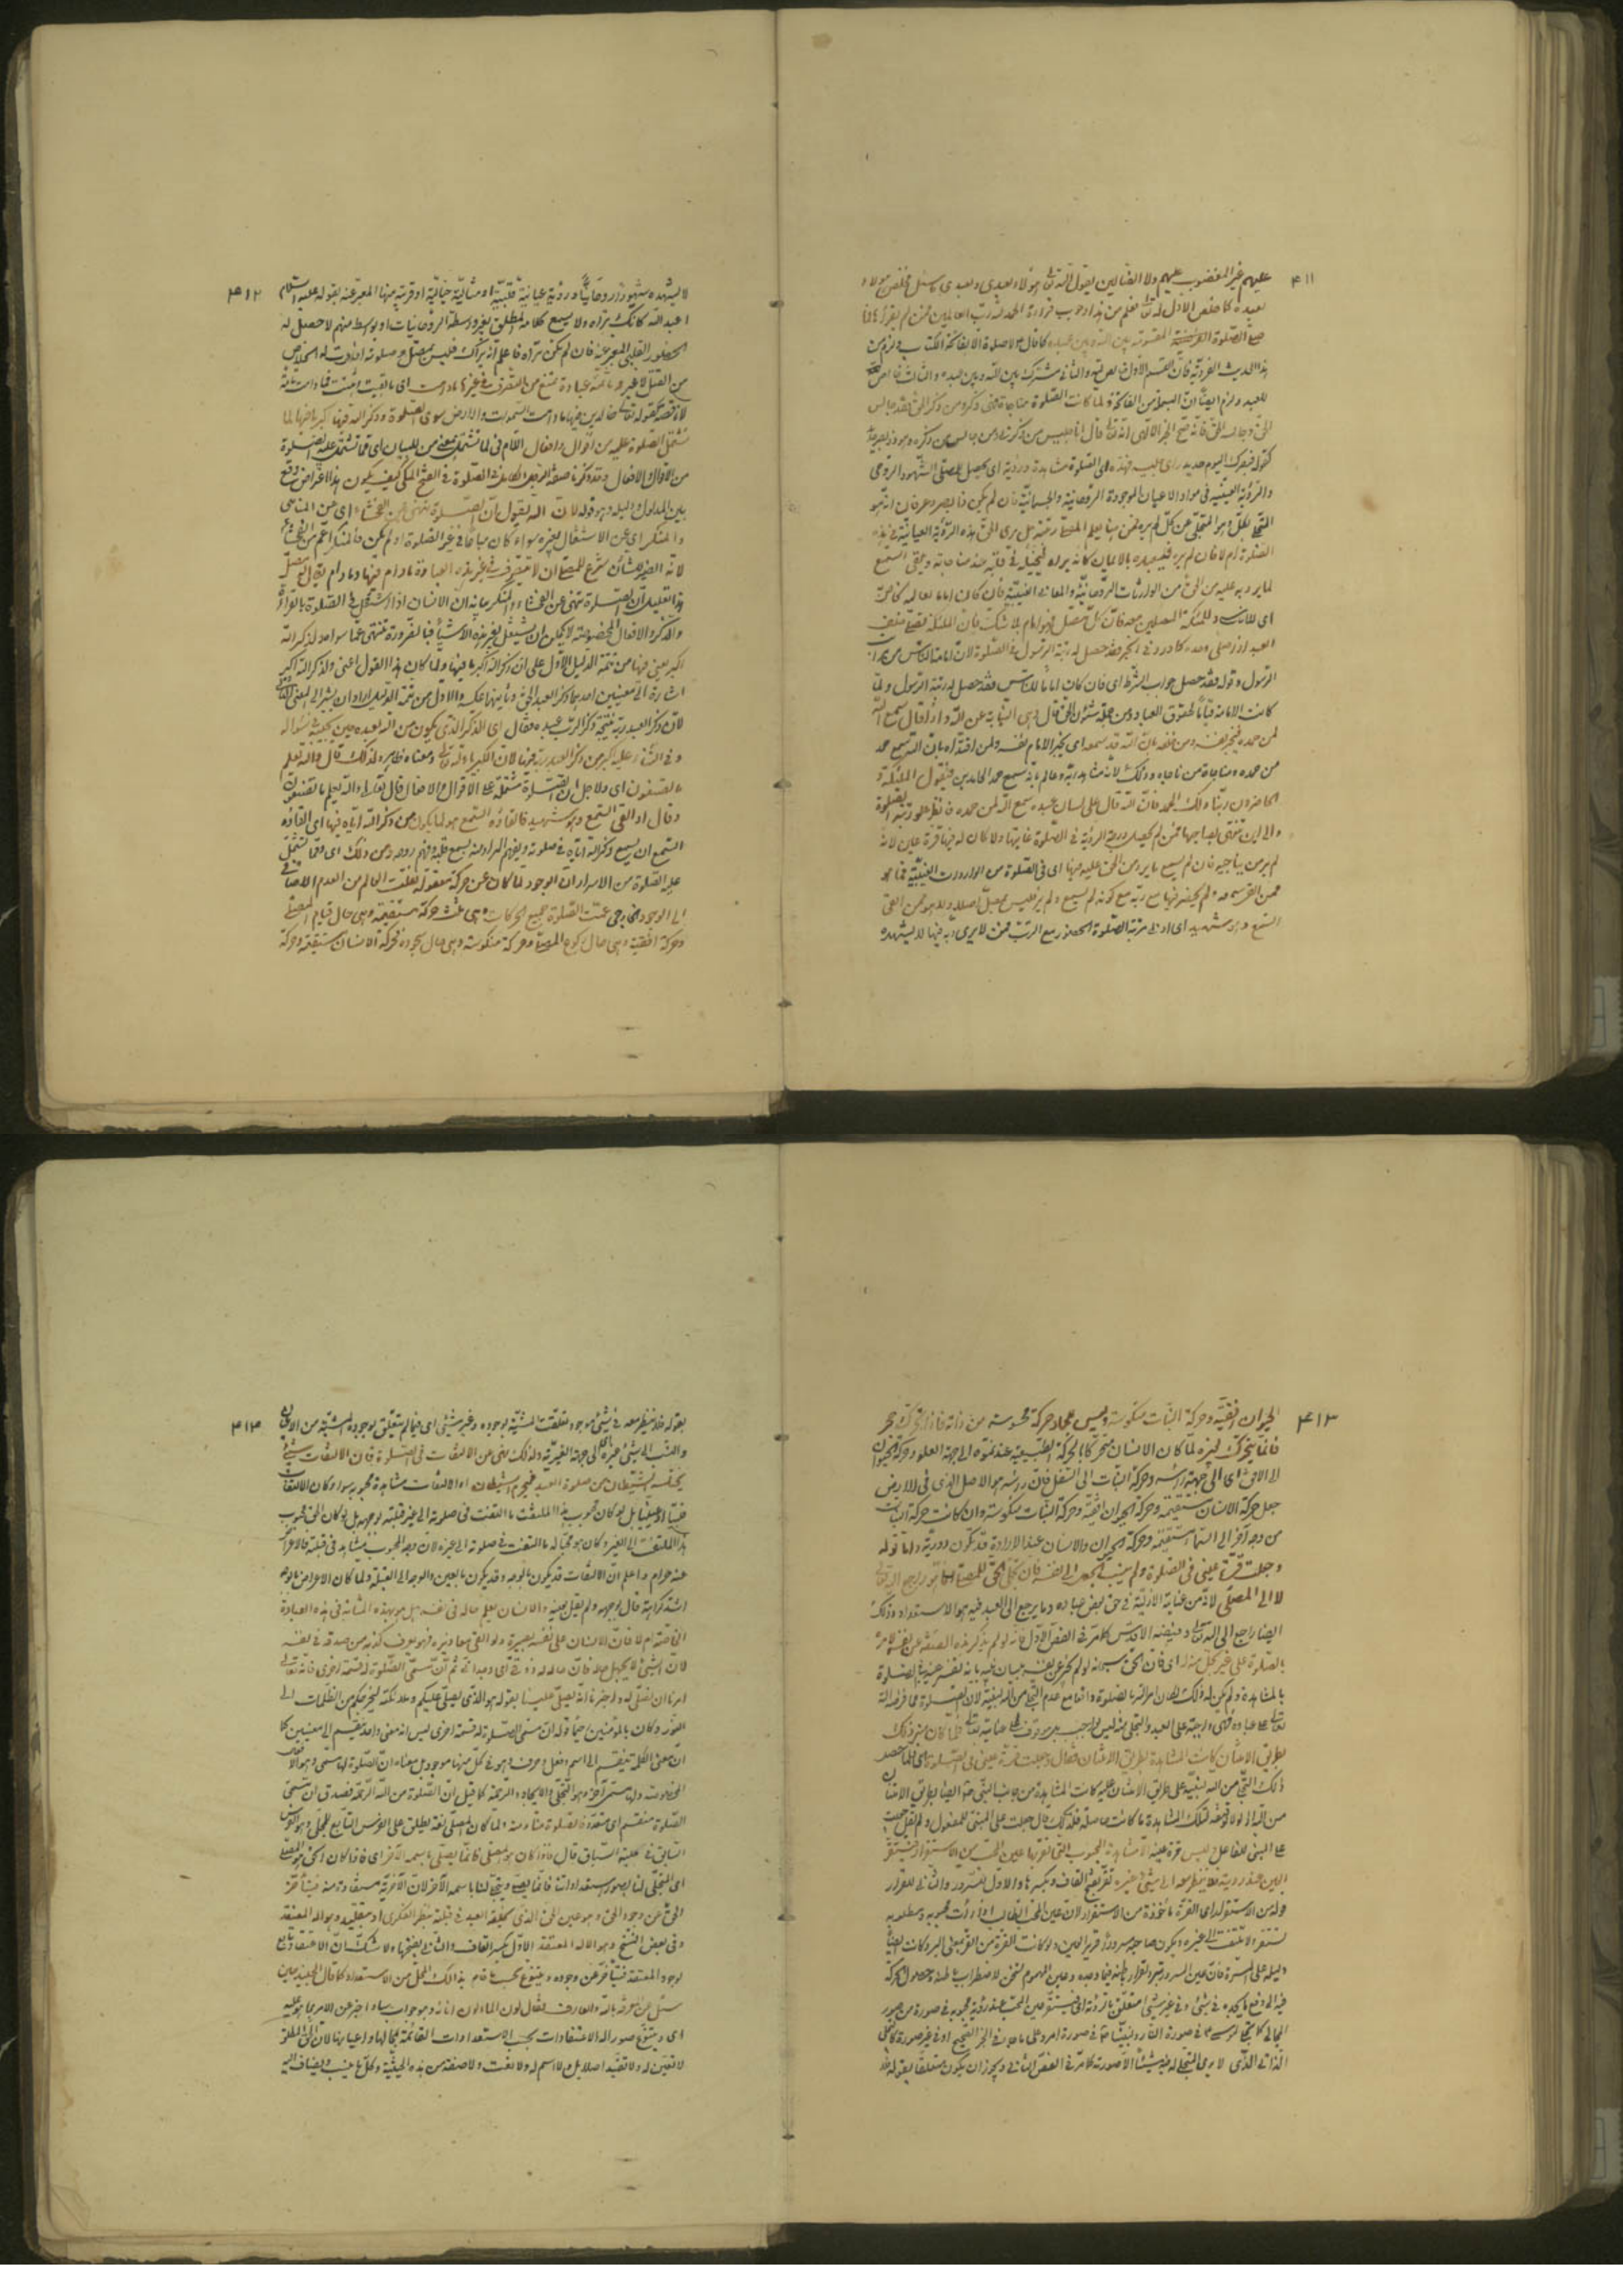 ٤١١
عليهم غير المغضوب عليهم ولا الضالين يقول الله تعالى هؤلاء لعبدى ولعبدى ما سئل فخلص هؤلاء
لعبده كما خلص الاول له تعالى فعلم من هذا وجوب قراءة الحمد لله رب العالمين فمن لم يقرأها فما
صلى الصلوة المقسومة بين الله وبين عبده كما قال لا صلوة الا بفاتحة الكتاب
هذا الحديث فان القسم الاول خالص لله والثانى مشترك بين الله وبين عبده والثالث خاص
للعبد ولزم ايضا ان البسملة من الفاتحة ولما كانت الصلوة مناجاة فهى ذكر ومن ذكر الحق فقد جالس
الحق وجالسه الحق فانه صح فى الخبر الالهى انه تعالى قال انا جليس من ذكرنى ومن جالس من ذكره وهو ذو بصر حديد
كقوله فبصرك اليوم حديد راى جليسه فهذه اى الصلوة مشاهدة ورؤية اى يحصل للمصلى الشهود الروحى
والرؤية العينية فى مواد الاعيان الموجودة الروحانية والجسمانية فان لم يكن ذا بصر وعرفان انه هو
المتجلى لكل وهو المتجلى عن كل لم يره فمن هنا يعلم المصلى رتبته هل يرى الحق هذه الرؤية العيانية فى هذه
الصلوة ام لا فان لم يره فليعبده بالايمان كانه يراه فيخيله فى قبلته عند مناجاته ويلقى السمع
لما يرد به عليه من الحق من الواردات الروحانية والمعانى الغيبية فان كان اماما لعالمه الخاص
اى للانس وللملئكة المصلين معه فان كل مصل فهو امام بلا شك فان الملئكة تصلى خلف
العبد اذا صلى وحده كما ورد فى الخبر فقد حصل له رتبة الرسول فى الصلوة لان امامة الناس من
الرسول وقوله فقد حصل جواب الشرط اى فان كان اماما للناس فقد حصل له رتبة الرسول ولما
كانت الامامة قياما لحقوق العباد ومن جملة شئون الحق قال وهى النيابة عن الله واذا قال سمع الله
لمن حمده فيخبر نفسه ومن خلفه بان الله قد سمعه اى يخبر الامام نفسه ولمن اقتداه بان الله سمع حمد
من حمده ومناجاة من ناجاه وذلك لانه مشاهد ربه وعالم بانه سميع حمد الحامدين فيقول الملئكة و
الحاضرون ربنا ولك الحمد فان الله قال على لسان عبده سمع الله لمن حمده فانظر علو رتبة الصلوة
والى اين تنتهى بصاحبها فمن لم يحصل درجة الرؤية فى الصلوة فما بلغ غايتها ولا كان له فيها قرة عين لانه
لم ير من يناجيه فان لم يسمع ما يرد من الحق عليه فيها اى فى الصلوة من الواردات الغيبية فما هو
ممن القى سمعه ومن لم يحضر فيها مع ربه مع كونه لم يسمع ولم ير فليس بمصل اصلا ولا هو ممن القى
السمع وهو شهيد اى ادنى مرتبة الصلوة الحضور مع الرب فمن لا يرى ربه فيها لا يشهده
٤١٢
لا يشهده شهودا روحانيا ورؤية عيانية قلبية او مثالية خيالية او قريبة منها المعبر عنه بقوله عليه السلام
اعبد الله كانك تراه ولا يسمع كلامه المطلق بغير واسطة الروحانيات او بواسطة منهم لا حصل له
الحضور القلبى المعبر عنه فان لم يكن تراه فاعلم انه يراك فليس بمصل و صلوته افادت له الخلاص
من القتل لا غير وما ثمة عبادة تمنع من التصرف فى غيرها ما دامت اى ما بقيت فما دامت تامة
لا ناقصة كقوله تعالى خالدين فيها ما دامت السموات والارض سوى الصلوة وذكر الله فيها اكبر ما فيها لما
تشتمل الصلوة عليه من اقوال وافعال اللام فى لما تشتمل بمعنى من للبيان اى مما تشتمل عليه الصلوة
من الاقوال والافعال وقد ذكرنا صفة الرجل الكامل فى الصلوة فى الفتح المكى كيف يكون هذا اعتراض وقع
بين المدلول ودليله وهو قوله لان الله يقول ان الصلوة تنهى عن الفحشاء اى عن المناهى
والمنكر اى عن الاشتغال بغيره سواء كان مباحا فى غير الصلوة او لم يكن فالمنكر اعم من الفحشاء
لانه الضمير للشان شرع للمصلى ان لا يتصرف فى غير هذه العبادة ما دام فيها وما دام يقال له مصل
هذا تعليل ان الصلوة تنهى عن الفحشاء والمنكر بيانه ان الانسان اذا اشتغل فى الصلوة بالقراءة
والذكر والافعال المخصوصة لا يمكن ان يشتغل بغير هذه الاشياء فبالضرورة تنتهى عما سواه ولذكر الله
اكبر يعنى فيها من تتمة الدليل الاول على ان ذكر الله اكبر ما فيها ولما كان هذا القول اعنى ولذكر الله اكبر
اشارة الى معنيين احدهما ذكر العبد الحق وثانيهما عكسه والاول من تتمة الدليل اراد ان يشير الى المعنى الثانى
لان ذكر العبد ربه نتيجة ذكر الرب عبده فقال اى الذكر الذى يكون من الله لعبده حين يجيبه فى سؤاله
وفى الثناء عليه اكبر من ذكر العبد ربه فيها لان الكبرياء لله تعالى ومعناه ظاهر ولذلك قال والله يعلم
ما تصنعون اى ولاجل ان الصلوة مشتملة على الاقوال والافعال قال تعالى والله يعلم ما تصنعون
وقال او القى السمع وهو شهيد فالقاؤه السمع هو لما يكون من ذكر الله اياه فيها اى القاؤه
السمع ان يسمع ذكر الله اياه فى صلوته ويفهم المراد منه بسمع قلبه وفهم روحه ومن ذلك اى ومما تشتمل
عليه الصلوة من الاسرار ان الوجود لما كان عن حركة معقولة نقلت العالم من العدم الاضافى
الى الوجود الخارجى عمت الصلوة جميع الحركات وهى ثلث حركة مستقيمة وهى حال قيام المصلى
وحركة افقية وهى حال ركوع المصلى وحركة منكوسة وهى حال سجوده فحركة الانسان مستقيمة وحركة
٤١٣
الحيوان افقية وحركة النبات منكوسة وليس للجماد حركة محسوسة من ذاته فاذا تحرك حجر
فانما يتحرك لغيره لما كان الانسان متحركا بالحركة الطبيعية عند نموه الى جهة العلو وحركة الحيوان
الى الافق اى الى جهة راسه وحركة النبات الى السفل فان راسه هو الاصل الذى فى الارض
جعل حركة الانسان مستقيمة وحركة الحيوان افقية وحركة النبات منكوسة وان كانت حركة النبات
من وجه آخر الى السماء مستقيمة وحركة الحيوان والانسان عند الارادة قد تكون دورية واما قوله
وجعلت قرة عينى فى الصلوة ولم ينسب الجعل الى نفسه فان تجلى الحق للمصلى انما هو راجع اليه تعالى
لا الى المصلى لانه من عناية الازلية فى حق بعض عباده وما يرجع الى العبد فيه هو الاستعداد وذلك
ايضا راجع الى الله تعالى وفيضه الاقدس كما مر فى الفص الاول فانه لو لم يذكر هذه الصفة عن نفسه لامره
بالصلوة على غير تجل منه له اى فان الحق سبحانه لو لم يخبر عن نفسه بلسان نبيه بانه نفسه عينه فى الصلوة
بالمشاهدة ولم يكن له ذلك لكان امر الله بالصلوة واقعا مع عدم التجلى من الله لنبيه لان الصلوة مما فرضه الله
تعالى على عباده فهى واجبة على العبد والتجلى منه ليس بواجب بل موقوف على عنايته تعالى فلما كان منه ذلك
بطريق الامتنان كانت المشاهدة بطريق الامتنان فقال وجعلت قرة عينى فى الصلوة اى فلما حصل
ذلك التجلى من الله لنبيه على طريق الامتنان عليه كانت المشاهدة من جانب النبى صلعم ايضا بطريق الامتنان
من الله اذ لولا توفيقه لتلك المشاهدة ما كانت حاصلة فلذلك قال جعلت على المبنى للمفعول ولم يقل جعلت
على المبنى للفاعل وليس قرة عينه الا مشاهدة المحبوب التى تقر بها عين المحب من الاستقرار فتستقر
العين عند رؤيته فلا ينظر معه الى شىء غيره تقر بفتح القاف وبكسرها والاول للسرور والثانى للقرار
قوله من الاستقرار اى القرة ماخوذة من الاستقرار لان عين المحب الطالب اذا رأت محبوبه ومطلوبه
تستقر ولا تلتفت الى غيره ويكون صاحبه مسرورا قرير العين ولو كانت القرة من القر بمعنى البرد كانت ايضا
دليلا على المسرة فان عين المسرور تبرد لقرار باطنه فيما وجده وعين المهموم تسخن لاضطراب باطنه وحصول الحركة
فيه الى دفع ما يجده فى شىء وفى غير شىء متعلق بالرؤية اى فتستقر عين المحب عند رؤية محبوبه فى صورة من صور
المجالى كما تجلى لموسى ع فى صورة النار ولنبينا صلعم فى صورة امرد على ما جاء فى الخبر الصحيح او فى غير صورة كالتجلى
الذاتى الذى لا يرى المتجلى له فيه شيئا الا صورته كما مر فى الفص الثانى ويجوز ان يكون متعلقا بقوله فلا
٤١٤
بقوله فلا ينظر معه فى شىء موجود تعلقت المشية بوجوده وغير شىء اى فيما لم يتعلق بوجوده المشية من الاعيان
والنسب الى شىء غيره اى الى جهة الغيرية ولذلك نهى عن الالتفات فى الصلوة فان الالتفات شىء
يختلسه الشيطان من صلوة العبد فيحرمه الشيطان اى الالتفات مشاهدة محبوبه سواء كان الالتفات
حسيا او عقليا بل لو كان محبوب هذا الملتفت ما التفت فى صلوته الى غير قبلته بوجهه بل لو كان الحق محبوب
هذا الملتفت الى الغير وكان هو محبا له ما التفت فى صلوته الى غيره لان وجه المحبوب مشاهد فى قبلته فالاعراض
عنه حرام واعلم ان الالتفات قد يكون بالوجه وقد يكون بالعين والوجه الى القبلة ولما كان الاعراض بالوجه
اشد كراهة قال بوجهه ولم يقل بعينه والانسان يعلم حاله فى نفسه هل هو بهذه المثابة فى هذه العبادة
الخاصة ام لا فان الانسان على نفسه بصيرة ولو القى معاذيره فهو يعرف كذبه من صدقه فى نفسه
لان الشىء لا يجهل حاله فان حاله له ذوقى اى وجدانى ثم ان مسمى الصلوة له قسمة اخرى فانه تعالى
امرنا ان نصلى له واخبرنا انه يصلى علينا بقوله هو الذى يصلى عليكم وملائكته ليخرجكم من الظلمات الى
النور وكان بالمؤمنين رحيما قوله ان مسمى الصلوة له قسمة اخرى ليس انه معنى واحد ينقسم الى معنيين كما
ان معنى الكلمة ينقسم الى اسم وفعل وحرف وهو فى كل منها موجود بل معناه ان الصلوة لها مسمى وهو الافعال
المخصوصة ولها مسمى آخر وهو التجلى والايجاد والرحمة كما قيل ان الصلوة من الله الرحمة فصدق ان مسمى
الصلوة منقسم اى متعدد فالصلوة منا ومنه ولما كان المصلى لغة يطلق على الفرس التابع للمجلى وهو الفرس
السابق فى حلبة السباق قال فاذا كان هو المصلى فانما يصلى باسمه الآخر اى فاذا كان الحق هو المصلى
اى المتجلى لنا بصور استعداداتنا فانما يصلى ويتجلى لنا باسمه الآخر لان الآخرية مستفادة منه فيتأخر
الحق عن وجود الحق وهو عين الحق الذى يخلقه العبد فى قبلته بنظره الفكرى او بتقليده وهو الاله المعتقد
وفى بعض النسخ وهو الاله المعتقد الاول بكسر القاف والثانى بفتحها ولا شك ان الاعتقاد تابع
لوجود المعتقد فيتأخر عن وجوده ويتنوع بحسب ما قام بذلك المحل من الاستعداد كما قال الجنيد حين
سئل عن المعرفة بالله والعارف فقال لون الماء لون انائه وهو جواب ساد اخبر عن الامر بما هو عليه
اى ويتنوع صور الاله الاعتقادات بحسب الاستعدادات القائمة بمحالها واعيانها لان الحق المطلق
لا تعين له ولا تقيد اصلا بل لا اسم له ولا نعت ولا صفة من هذه الحيثية وكل ما ينسب ويضاف اليه